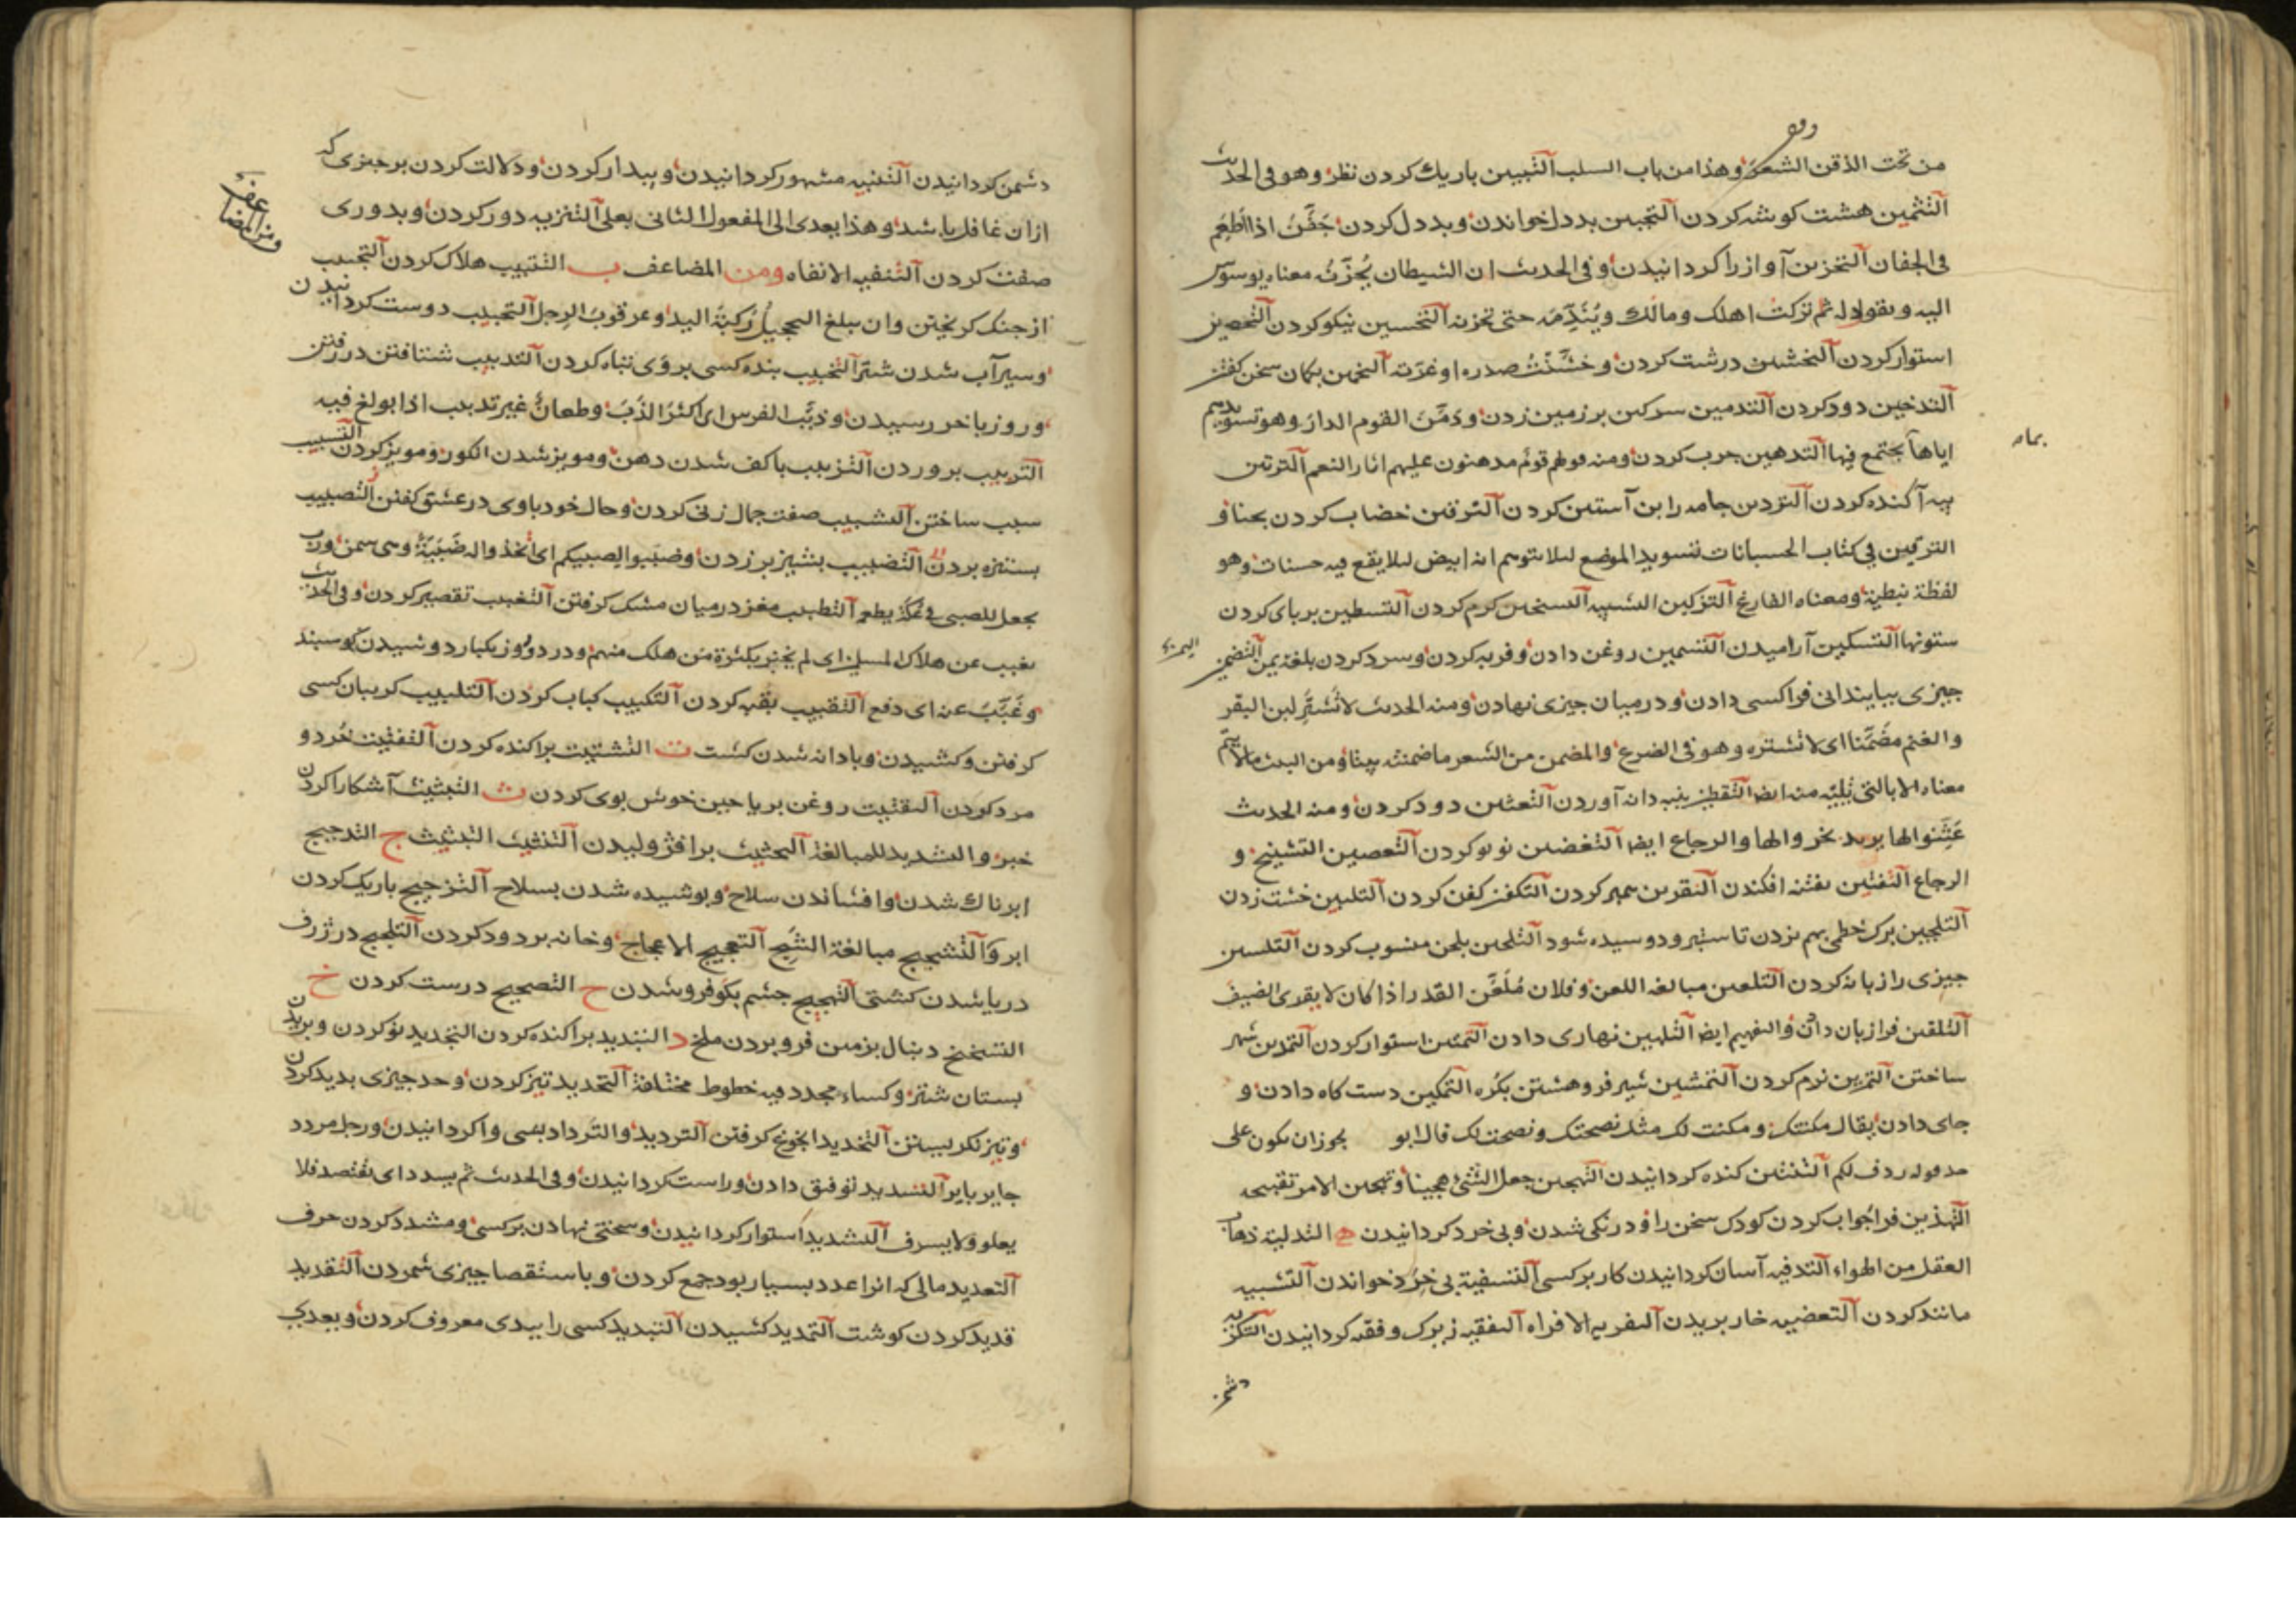 من تحت الذقن الشعر وهذا من باب السلب التبیین باریك کردن نظر وهو فی الحدیث
التثمین هشت کوشه کردن التجبین بددل خواندن وبددل کردن جَفَّنَ اذا اَطعَمَ
فی الجفان التحزین آواز را کردانیدن وفی الحدیث ان الشیطان یُحَزِّنُ معناه یوسوس
الیه ویقول له ثم ترکت اهلك ومالك ویُنَدِّمَه حتی تحزنه التحسین نیکو کردن التحصین
استوار کردن التخشین درشت کردن وخَشَّنْتُ صدره اوغرته التخمین بکمان سخن کفتن
التدخین دود کردن التدمین سرکین بر زمین زدن ودَمَّنَ القوم الدار وهو تسویدهم
بماء
ایاها یجتمع فیها التدهین چرب کردن ومنه قولهم قومٌ مدهنون علیهم اثار النعم الترتین
بیه آکنده کردن التردین جامه را بن آستین کردن الترقین خضاب کردن بحنا و
الترقین فی کتاب الحسبانات تسوید الموضع لئلا یتوهم انه ابیض لئلا یقع فیه حسنات وهو
لفظة نبطیة ومعناه الفارغ التزکین التشبیه التسخین کرم کردن التسطین بر پای کردن
ستونها التسکین آرامیدن التسمین روغن دادن وفربه کردن وسرد کردن بلغة یمن التضمین
چیزی ببایندانی فرا کسی دادن ودر میان چیزی نهادن ومنه الحدیث لا تشتر لبن البقر
والغنم مضَمَّنًا ای لا تشتره وهو فی الضرع والمضمن من الشعر ما ضمنته بیتا ومن البیت ما لا یتمّ
معناه الا بالتی تَلِیْه منه ایضا التقطین پنبه دانه آوردن التعثین دود کردن ومنه الحدیث
عَثِّنوا لها یرید بخروا لها والرجاع ایضا التغضین نو نو کردن التعصین التشنیخ و
الرجاع التفتین بفتنه افکندن التقرین سمبر کردن التکفین کفن کردن التلبین خشت زدن
التلجین برك خطمی بهم بزدن تا ستبر ودوسیده شود التلحین بلحن منسوب کردن التلسین
چیزی را زبانه کردن التلعین مبالغة اللعن وفلان مُلَعَّن القدر اذا کان لا یقری الضیف
التلقین فرا زبان دادن والتفهیم ایضا التلهین نهاری دادن التمتین استوار کردن التمدین شهر
ساختن التمرین نرم کردن التمشین شیر فرو هشتن بکره التمکین دست کاه دادن و
جای دادن یقال مکنتك ومکنت لك مثل نصحتك ونصحت لك قال ابو یجوز ان یکون علی
حد قوله ردف لکم التنتین کنده کردانیدن التهجین جعل الشیٔ هجینا وتهجین الامر تقبیحه
التهذین فرا جواب کردن کودك سخن را ودرنکی شدن وبی خرد کردانیدن ه التدلیه ذهاب
العقل من الهواء التدفیه آسان کردانیدن کار بر کسی التسفیه بی خِرَد خواندن التشبیه
مانند کردن التعضیه خار بریدن التفریه الافراه التفقیه زیرك وفقه کردانیدن التکریه
دشمن
دشمن کردانیدن التنبیه مشهور کردانیدن وبیدار کردن ودلالت کردن بر چیزی که
ازان غافل باشد وهذا یعدی الی المفعول الثانی بعلی التنزیه دور کردن وبدوری
ومن المضاعف
صفت کردن التنفیه الانفاه ومن المضاعف ب التتبیب هلاك کردن التجبیب
از جنك کریختن وان یبلغ التحجیلُ رُکبَةَ الید وعرقوبَ الرِجل التحبیب دوست کردانیدن
وسیرآب شدن شتر التخبیب بنده کسی بروی تباه کردن التدبیب شتافتن در رفتن
وروز باخر رسیدن وذبَّب الفرس ای اکثرَ الذَبَّ وطعانٌ غیر تذبیب اذا بولغ فیه
التربیب بروردن التزبیب باکف شدن دهن ومویز شدن انکور ومویز کردن التسبیب
سبب ساختن التشبیب صفت جمال زنی کردن وحال خود باوی در عشق کفتن التصبیب
بستیزه بردن التضبیب بشیز برزدن وضبّبوا لصبیکم ای اتّخذوا له ضَبِیْبَةً وهی سمن ورُب
یجعل للصبی فی عُکّة یطعم التطبیب مغز درمیان مشك کرفتن التغبیب تقصیر کردن وفی الحدیث
یغبب عن هلاك المسلمین ای لم یخبر بکثرة من هلك منهم ودر دو روز یکبار دوشیدن کوسبند
وغَبَّبَ عنه ای دفع التقبیب بقبه کردن التکبیب کباب کردن التلبیب کریبان کسی
کرفتن وکشیدن وبادانه شدن کشت ت التشتیت براکنده کردن التفتیت خُرد و
مرد کردن التقتیت روغن بریاحین خوش بوی کردن ث التبثیث آشکارا کردن
خبر والتشدید للمبالغة التحثیث بر افژولیدن التنثیث التبثیث ج التدجیج
ابرناك شدن وافشاندن سلاح وبوشیده شدن بسلاح التزجیج باریك کردن
ابرو التشجیج مبالغة الشَجِّ التعجیج الاعجاج وخانه بر دود کردن التلجیج در ژرف
دریا شدن کشتی التهجیج چشم بکو فرو شدن ح التصحیح درست کردن خ
التسخیخ دنبال بزمین فرو بردن ملخ د التبدید براکنده کردن التجدید نو کردن وبریدن
بستان شتر وکساء مجدد فیه خطوط مختلفة التحدید تیز کردن وحد چیزی بدید کردن
وتیز نکریستن التخدید اخوخ کرفتن التردید والترداد بمی واکردانیدن ورجل مردد
جایر بایر التسدید توفیق دادن وراست کردانیدن وفی الحدیث ثم یسدد ای یقتصد فلا
یعلو ولا یسرف التشدید استوار کردانیدن وسختی نهادن بر کسی ومشدد کردن حرف
التعدید مالی که انرا عدد بسیار بود جمع کردن وباستقصا چیزی شمردن التقدید
قدید کردن کوشت التمدید کشیدن التندید کسی را ببدی معروف کردن ویعدی